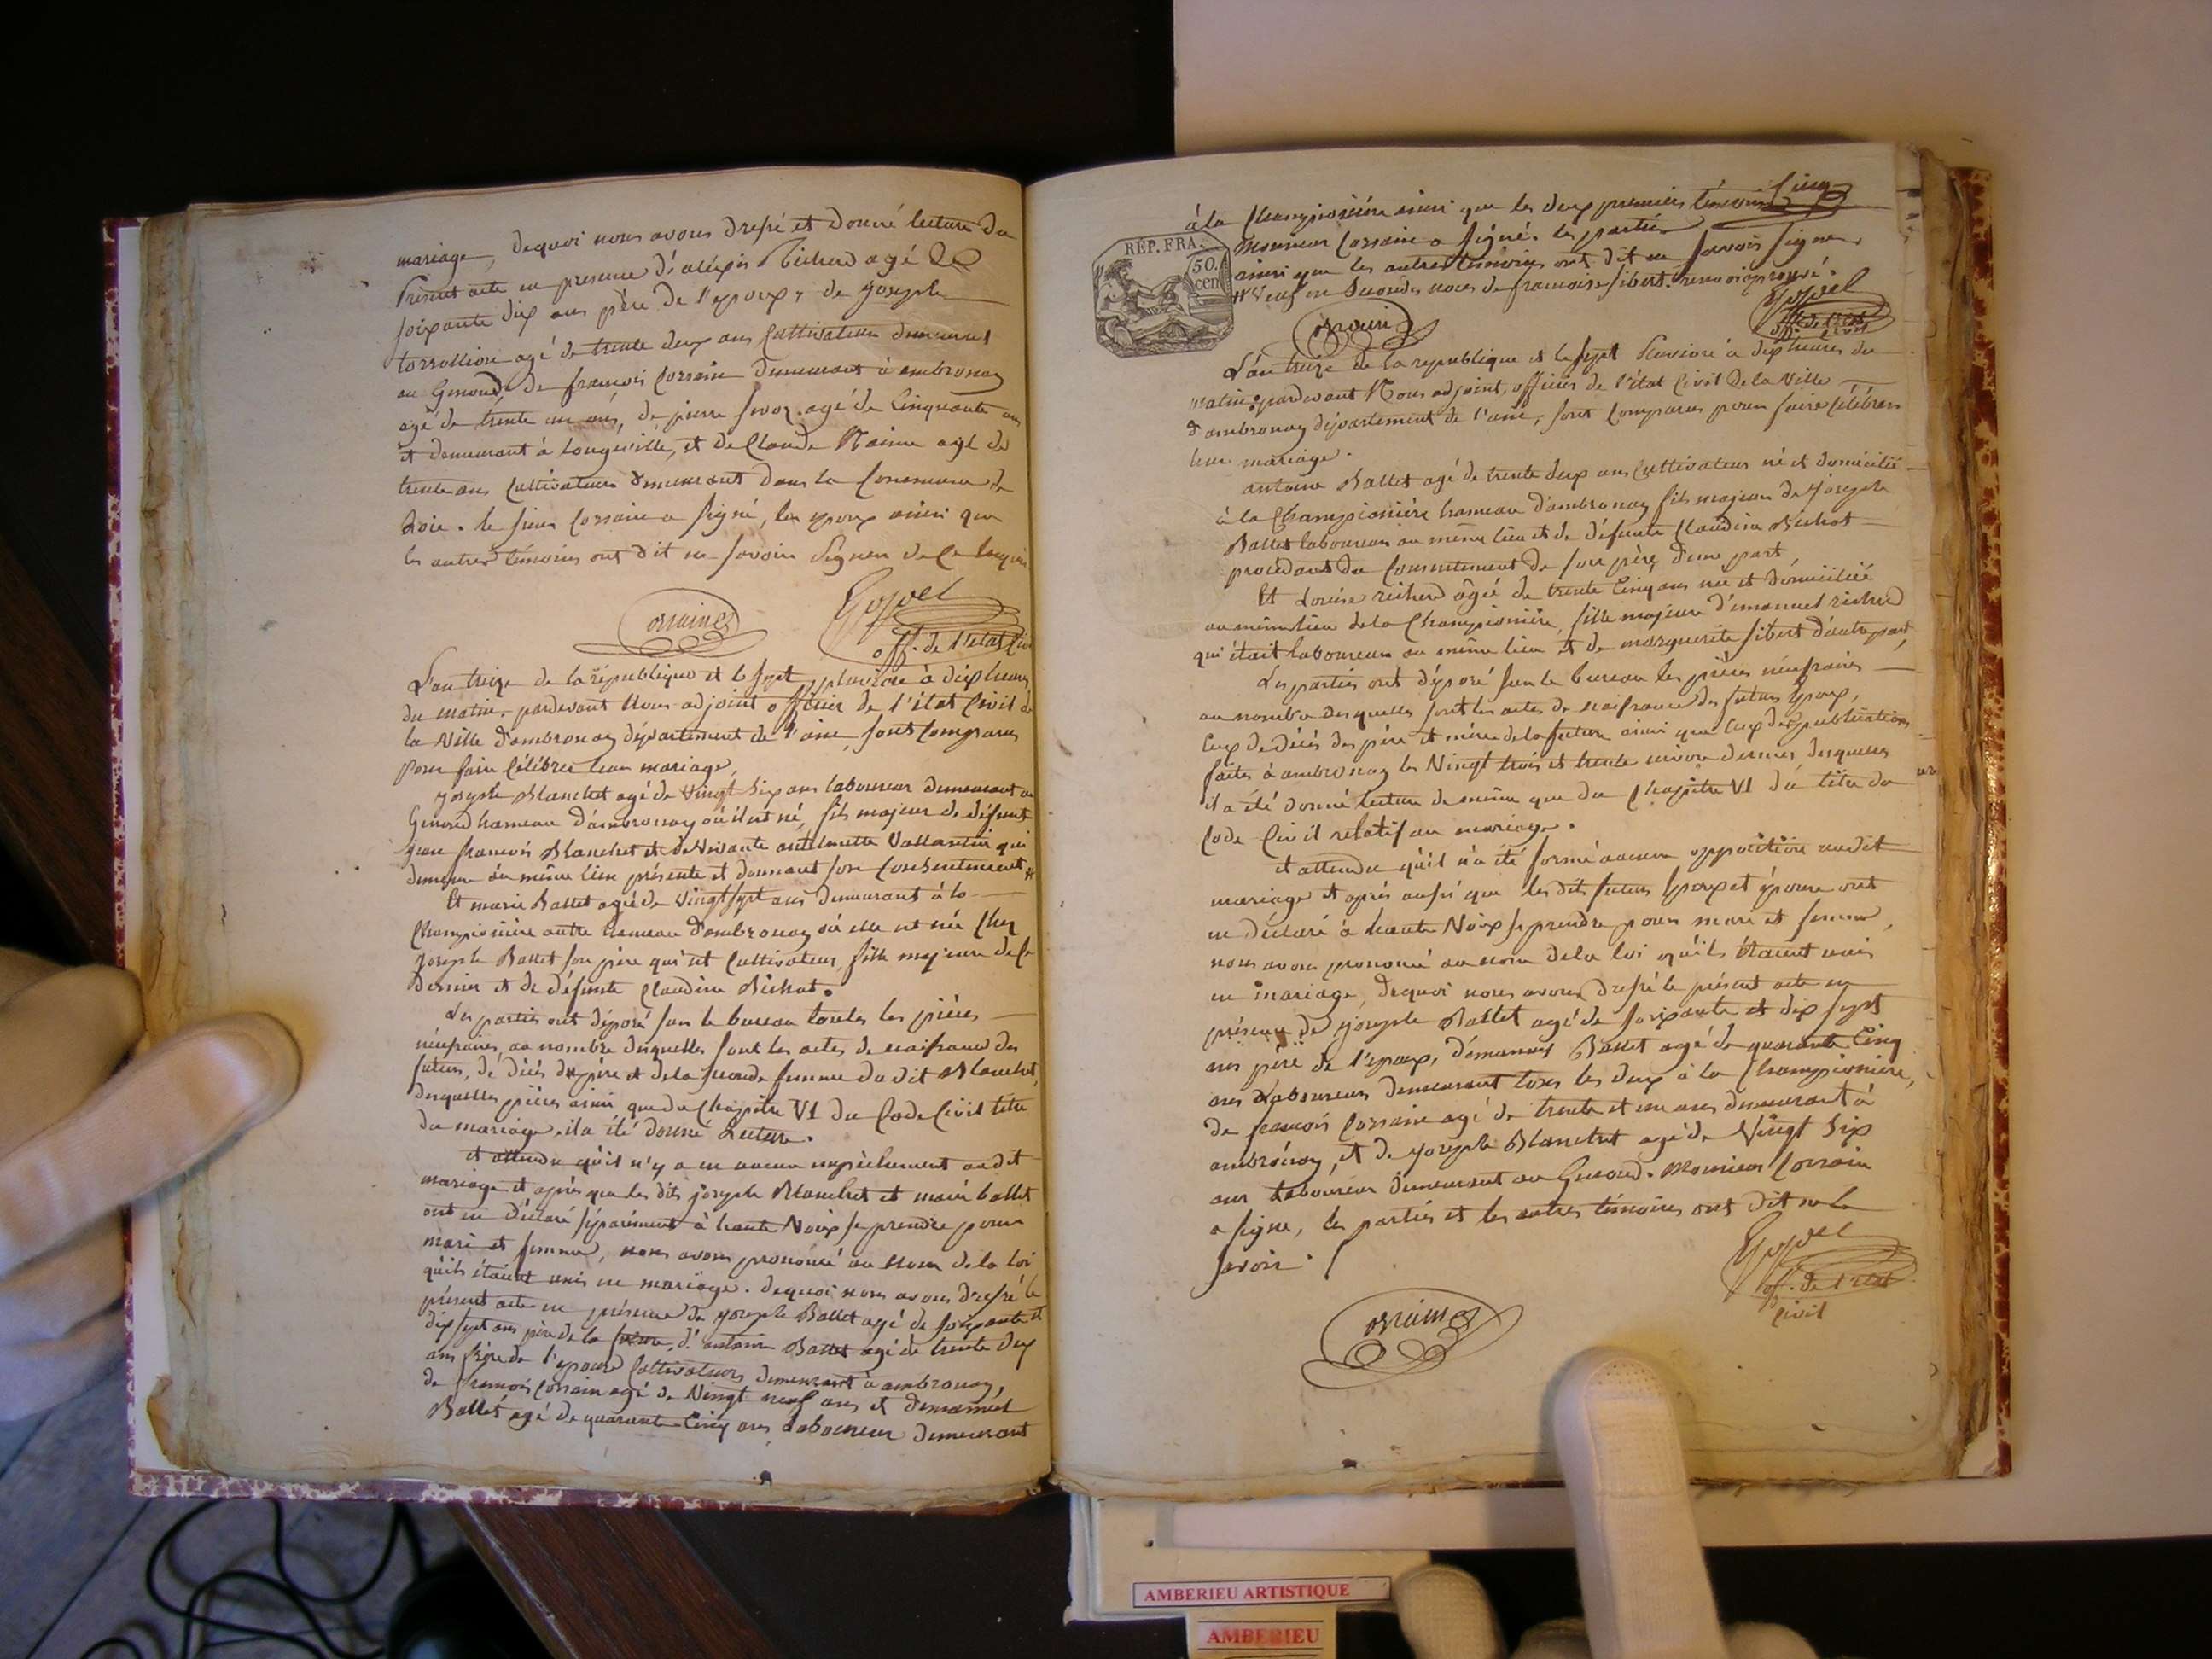 mariage, dequoi nous avons dressé et donné lecture du
Présent acte en presence d'alexis Richerd agé de
soixante dix ans père de l'epoux, de joseph
agé de trente deux ans Cultivateur demeurant
au Genoud, de françois Corrain demeurant à ambronay
agé de trente un ans, de pierre agé de Cinquante ans
et demeurant à longeville, et de Claude agé de
trente ans Cultivateur demeurant dans la Commune de
doie. le sieur Corrain a signé, les epoux ainsi que
les autres témoins ont dit ne savoir Signer de ce requis
orrain
off. de l'etat Civ
L'an treize de la république et le sept pluviose à dix heures
du matin, pardevant Nous adjoint officier de l'état Civil de
la Ville d'ambronay département de l'ain, sont Comparus
Pour faire Célébrer leur mariage,
joseph Blanchet agé de Vingt Six ans laboureur demeurant au
Genoud hameau d'ambronay où il est né, fils majeur de défunt
jean francois Blanchet et de Vivante anthelmette Vallentin qui
demeure au même lieu présente et donnant son Consentement #
Et marie Ballet agée de Vingt sept ans demeurant à la
Championière autre hameau d'ambronay où elle est née Chez
joseph Ballet son père qui est Cultivateur, fille majeure de Ce
Dernier et de défunte Claudine Bichat.
Les parties ont déposé sur le bureau toutes les pièces
nécessaires, au nombre desquelles sont les actes de naissance des
futurs, de décés du père et de la seconde femme du dit Blanchet,
desquelles pièces ainsi que du Chapitre VI du Code Civil titre
du mariage, il a été donné Lecture.
et attendu qu'il n'y a eu aucun empêchement audit
mariage et après que les dits joseph Blanchet et marie ballet
ont eu déclaré séparément à haute Voix se prendre pour
mari et femme, nous avons prononcé au Nom de la loi
qu'ils étaient unis en mariage. dequoi nous avons dressé le
présent acte en présence de joseph Ballet agé de soixante et
dix sept ans père de la d'antoine Ballet agé de trente deux
ans frère de l'epouse Cultivateurs demeurant à ambronay,
de francois Corrain agé de Vingt neuf ans et d'emanuel
Ballet agé de quarante Cinq ans Laboureur demeurant
à la Championière ainsi que les deux premiers témoins
Monsieur Corrain a signé. les parties
ainsi que les autres témoins ont dit ne savoir signer
# Veuf en Secondes noces de francoise sibert. renvoi aprouvé.
RÉP. FRA.
50.
cen
orrain
off. de l'etat
civil
L'an treize de la republique et le sept Pluviose à dix heures du
matin, pardevant Nous adjoint, officier de l'état Civil de la Ville
d'ambronay département de l'ain, sont Comparus pour faire Célébrer
leur mariage.
antoine Ballet agé de trente deux ans Cultivateur né et domicilié
à la Championière hameau d'ambronay fils majeur de joseph
Ballet laboureur au même lieu et de défunte Claudine Bichat
procedant du Consentement de son père, d'une part,
Et Louise richerd âgée de trente Cinq ans née et domiciliée
au même lieu de la Championière, fille majeure d'emanuel richerd
qui était laboureur au même lieu et de marguerite sibert d'autre part,
Les parties ont déposé sur le bureau les pièces nécessaires
au nombre desquelles sont les actes de naissance des futurs Epoux,
Ceux de décès des père et mère de la future ainsi que Ceux des publications
faites à ambronay les Vingt trois et trente nivose dernier, desquelles
il a été donné lecture de même que du Chapitre VI du titre du
Code Civil relatif au mariage.
et attendu qu'il n'a été formé aucune opposition audit
mariage et après aussi que les dits futurs Epoux et épouse ont
eu déclaré à haute Voix se prendre pour mari et femme,
nous avons prononcé au nom de la loi qu'ils étaient unis
en mariage, dequoi nous avons dressé le présent acte en
présence de joseph Ballet agé de soixante et dix sept
ans père de l'epoux, d'emanuel Ballet agé de quarante Cinq
ans Laboureurs demeurant tous les deux à la Championière,
de francois Corrain agé de trente et un ans demeurant à
ambronay, et de joseph Blanchet agé de Vingt Six
ans Laboureur demeurant au Genoud. Monsieur Corrain
a signé, les parties et les autres témoins ont dit ne le
savoir.
orrain
off. de l'etat
civil
AMBERIEU ARTISTIQUE
AMBERIEU